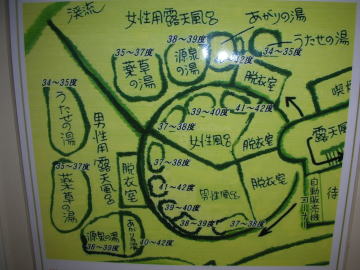 渓流
女性用露天風呂
あがりの湯
38～39度
源泉の湯
42度
うたせの湯
34～35度
35～37度
薬草の湯
脱衣室
34～35度
うたせの湯
男性用露天風呂
39～40度
41～42度
37～38度
女性風呂
脱衣室
喫
露天風
37～38度
35～37度
薬草の湯
脱衣室
41～42度
39～40度
男性風呂
脱衣室
38～39度
37～38度
自動販売機
待
源泉の湯
38～39度
あがりの湯
40～42度